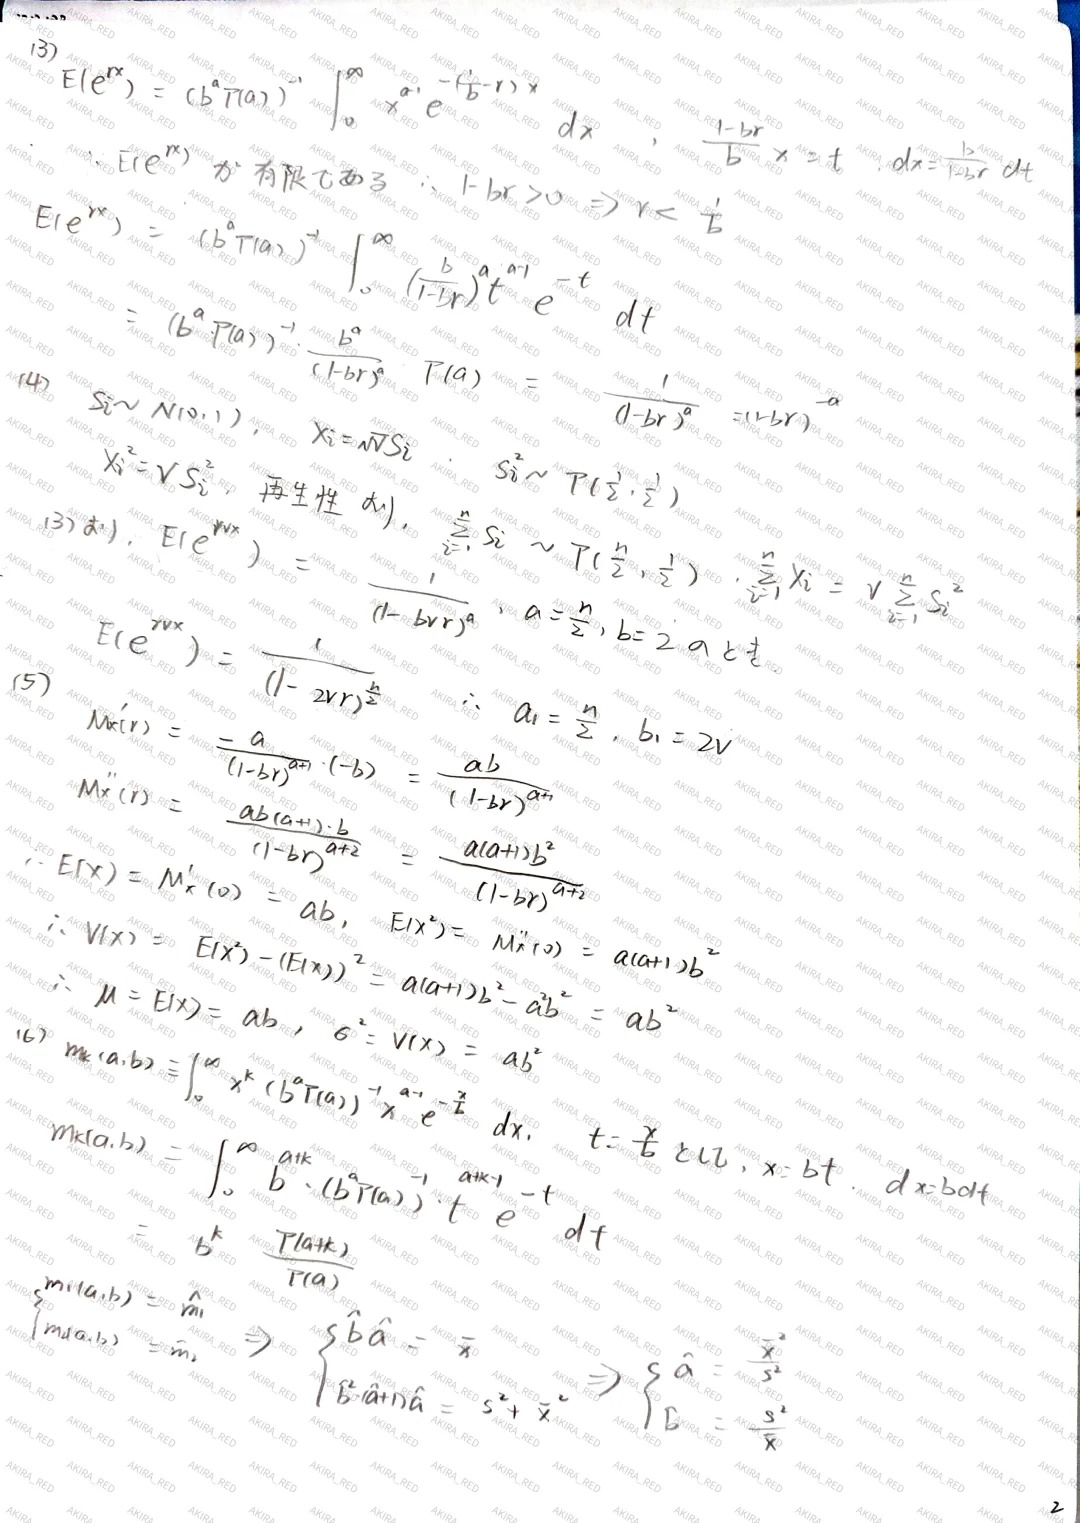 (3)
E(e^{rx}) = (b^a Γ(a))^{-1} ∫_0^∞ x^{a-1} e^{-(1/b - r)x} dx , (1-br)/b x = t . dx = b/(1-br) dt
∵ E(e^{rx}) が 有限である ∴ 1-br>0 ⇒ r < 1/b
E(e^{rx}) = (b^a Γ(a))^{-1} ∫_0^∞ (b/(1-br))^a t^{a-1} e^{-t} dt
= (b^a Γ(a))^{-1} · b^a/(1-br)^a Γ(a) = 1/(1-br)^a = (1-br)^{-a}
(4) Si ~ N(0,1), Xi = √V Si . Si^2 ~ Γ(1/2, 1/2)
Xi^2 = V Si^2 , 再生性 より, Σ_{i=1}^n Si ~ Γ(n/2, 1/2) . Σ_{i=1}^n Xi = V Σ_{i=1}^n Si^2
(3)より, E(e^{rvx}) = 1/(1-bvr)^a , a = n/2, b=2 のとき.
E(e^{rvx}) = 1/(1-2vr)^{n/2} ∴ a1 = n/2 , b1 = 2V
(5)
Mx'(r) = -a/(1-br)^{a+1} · (-b) = ab/(1-br)^{a+1}
Mx''(r) = ab(a+1)·b/(1-br)^{a+2} = a(a+1)b^2/(1-br)^{a+2}
∴ E(X) = Mx'(0) = ab, E(X^2) = Mx''(0) = a(a+1)b^2
∴ V(X) = E(X^2) - (E(X))^2 = a(a+1)b^2 - a^2b^2 = ab^2
∴ μ = E(X) = ab , σ^2 = V(X) = ab^2
(6) mk(a,b) = ∫_0^∞ x^k (b^a Γ(a))^{-1} x^{a-1} e^{-x/b} dx, t = x/b として, x = bt . dx = bdt
mk(a,b) = ∫_0^∞ b^{a+k} · (b^a Γ(a))^{-1} · t^{a+k-1} e^{-t} dt
= b^k Γ(a+k)/Γ(a)
{ m1(a,b) = m̂1 ⇒ { b̂â = x̄ ⇒ { â = x̄^2/s^2
m2(a,b) = m̂2 b̂^2(â+1)â = s^2 + x̄^2 b̂ = s^2/x̄
2
AKIRA_RED